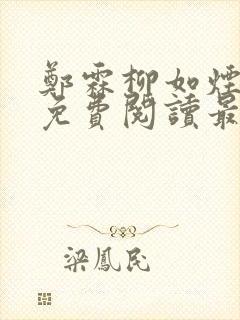 鄭霖柳如煙
免費閱讀最
梁鳳民